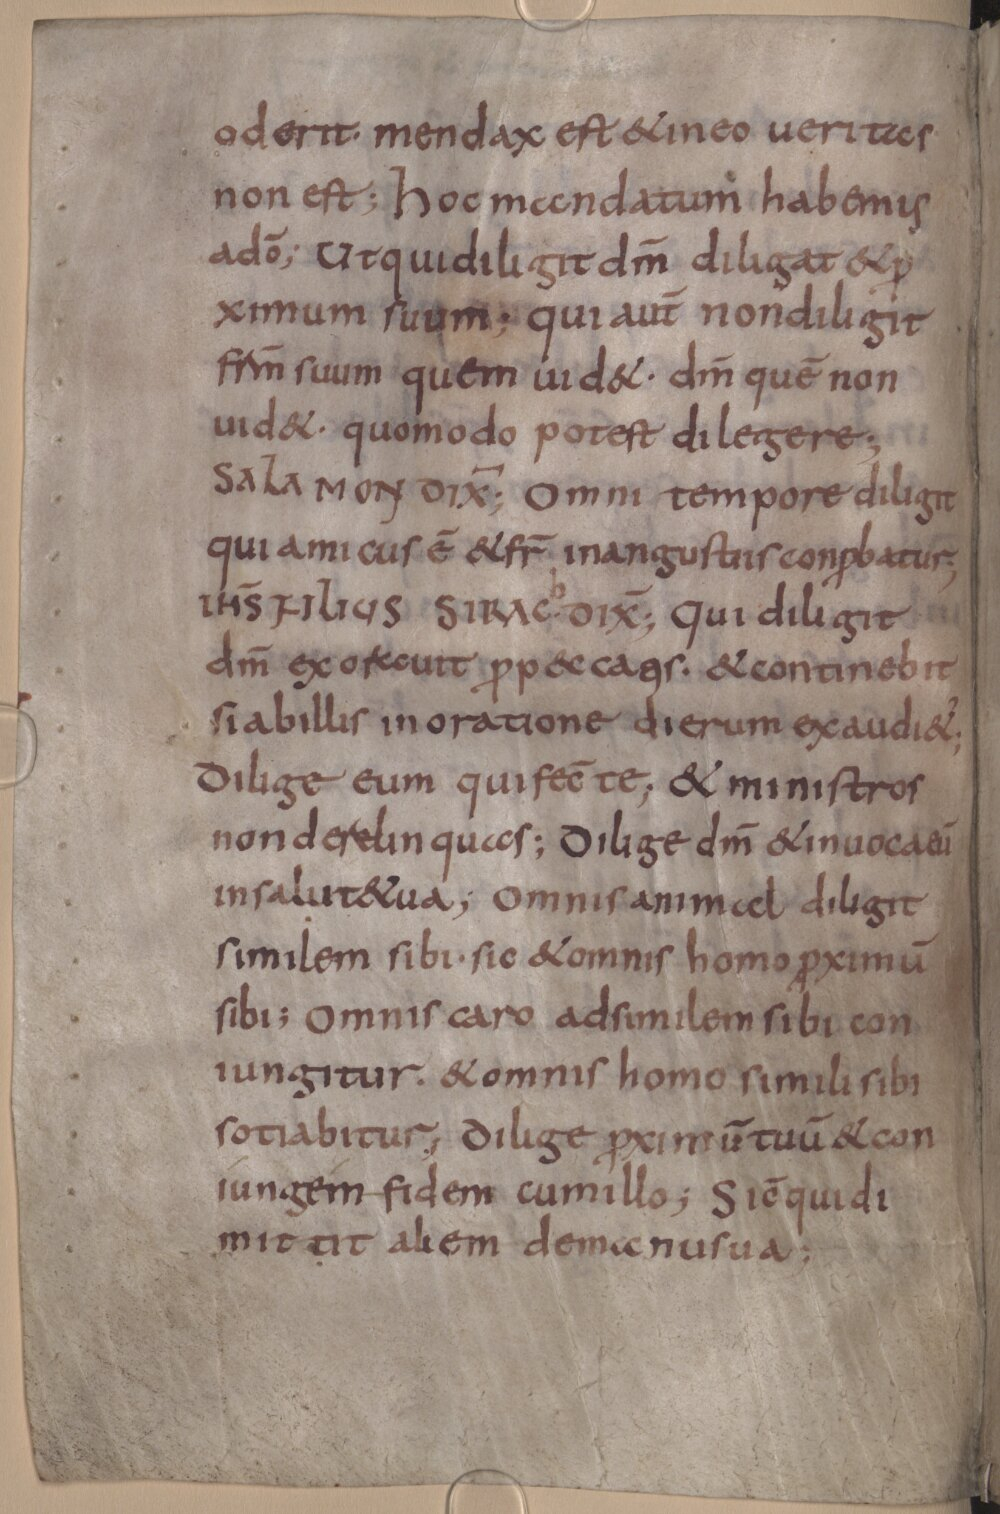 oderit· mendax est & in eo ueritas
non est; Hoc mandatum habemus
a dō; Ut qui diligit dm̄ diligat & ꝓ
ximum suum; qui aut̄ non diligit
frm̄ suum quem uid&· dm̄ quē non
uid&· quomodo potest dilegere;
SALAMON DIX̄; Omni tempore diligit
qui amicus ē & fr̄ in angustiis conꝓbatur;
IHS̄ FILIUS SIRACʰ DIX̄; Qui diligit
dm̄ exorauit ꝓ peccatis· & continebit
si ab illis in oratione dierum exaudi&ʼ;
Dilige eum qui fec̄ te; & ministros
non derelinquas; Dilige dm̄ & inuoca eū
in salut& ua; Omnis animal diligit
similem sibi· sic & omnis homo ꝓximū
sibi; Omnis caro ad similem sibi con
iungitur· & omnis homo simili sibi
sotiabitur; Dilige ꝓximū tuū & con
iungem fidem cum illo; Sic̄ qui di
mittit aliem de manu sua;